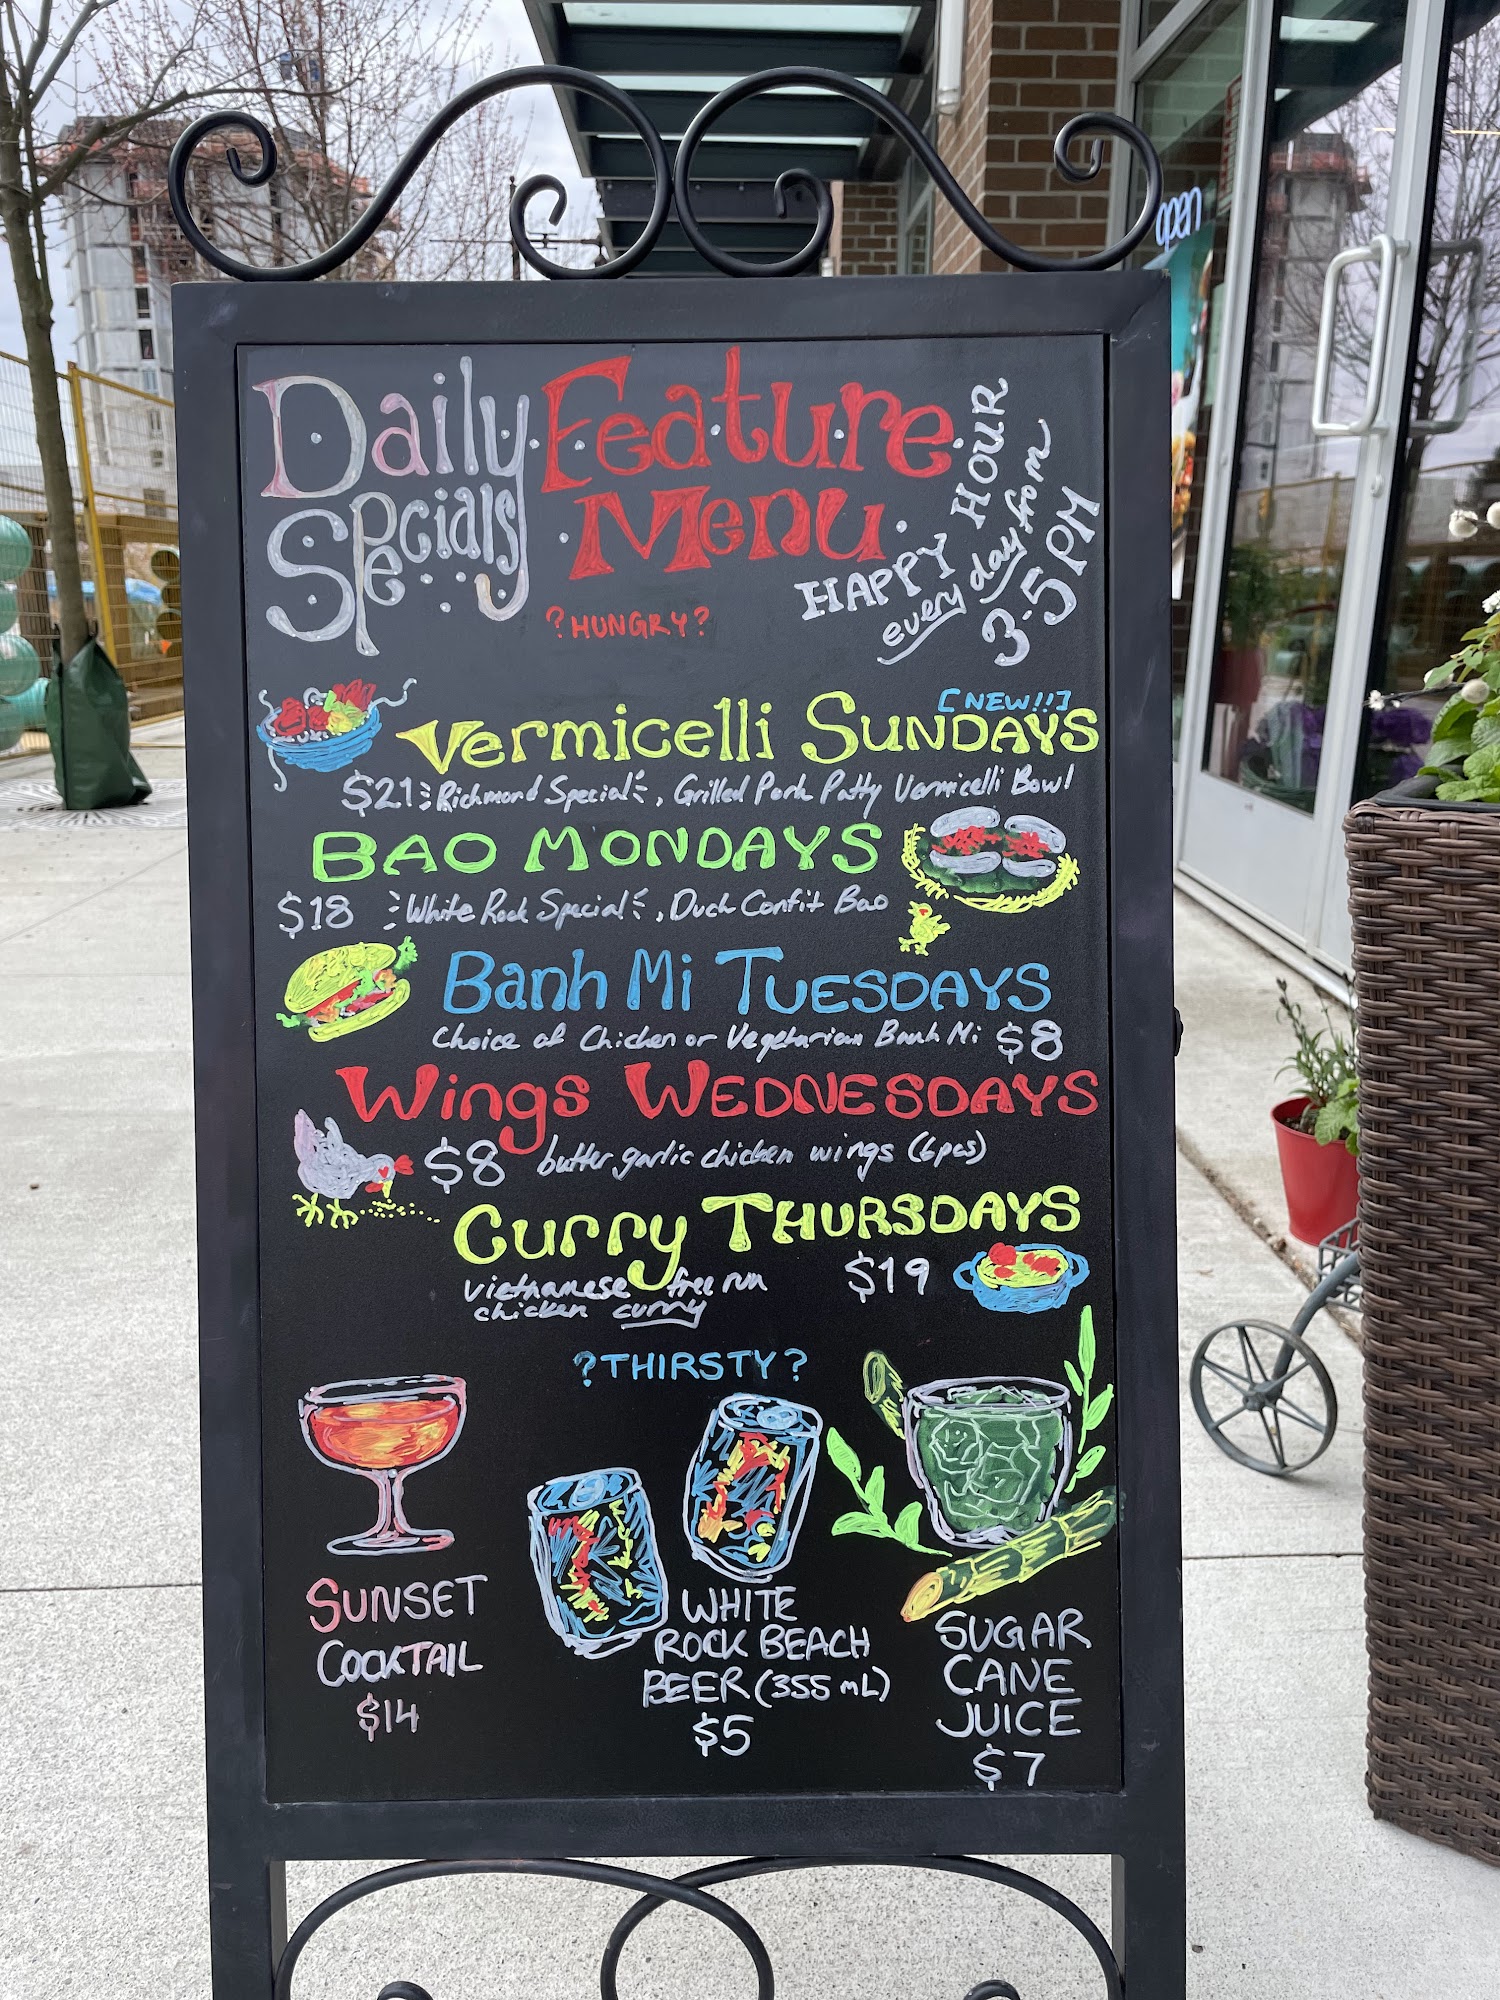 Daily Specials
Feature Menu
HAPPY HOUR
every day from
3-5PM
?HUNGRY?
[NEW!!]
Vermicelli SUNDAYS
$21 Richmond Special, Grilled Pork Patty Vermicelli Bowl
BAO MONDAYS
$18 White Rock Special, Duck Confit Bao
Banh Mi TUESDAYS
Choice of Chicken or Vegetarian Banh Mi $8
Wings WEDNESDAYS
$8 butter garlic chicken wings (6pcs)
Curry THURSDAYS
vietnamese free run
chicken curry
$19
?THIRSTY?
SUNSET
COCKTAIL
$14
WHITE
ROCK BEACH
BEER (355 mL)
$5
SUGAR
CANE
JUICE
$7
open